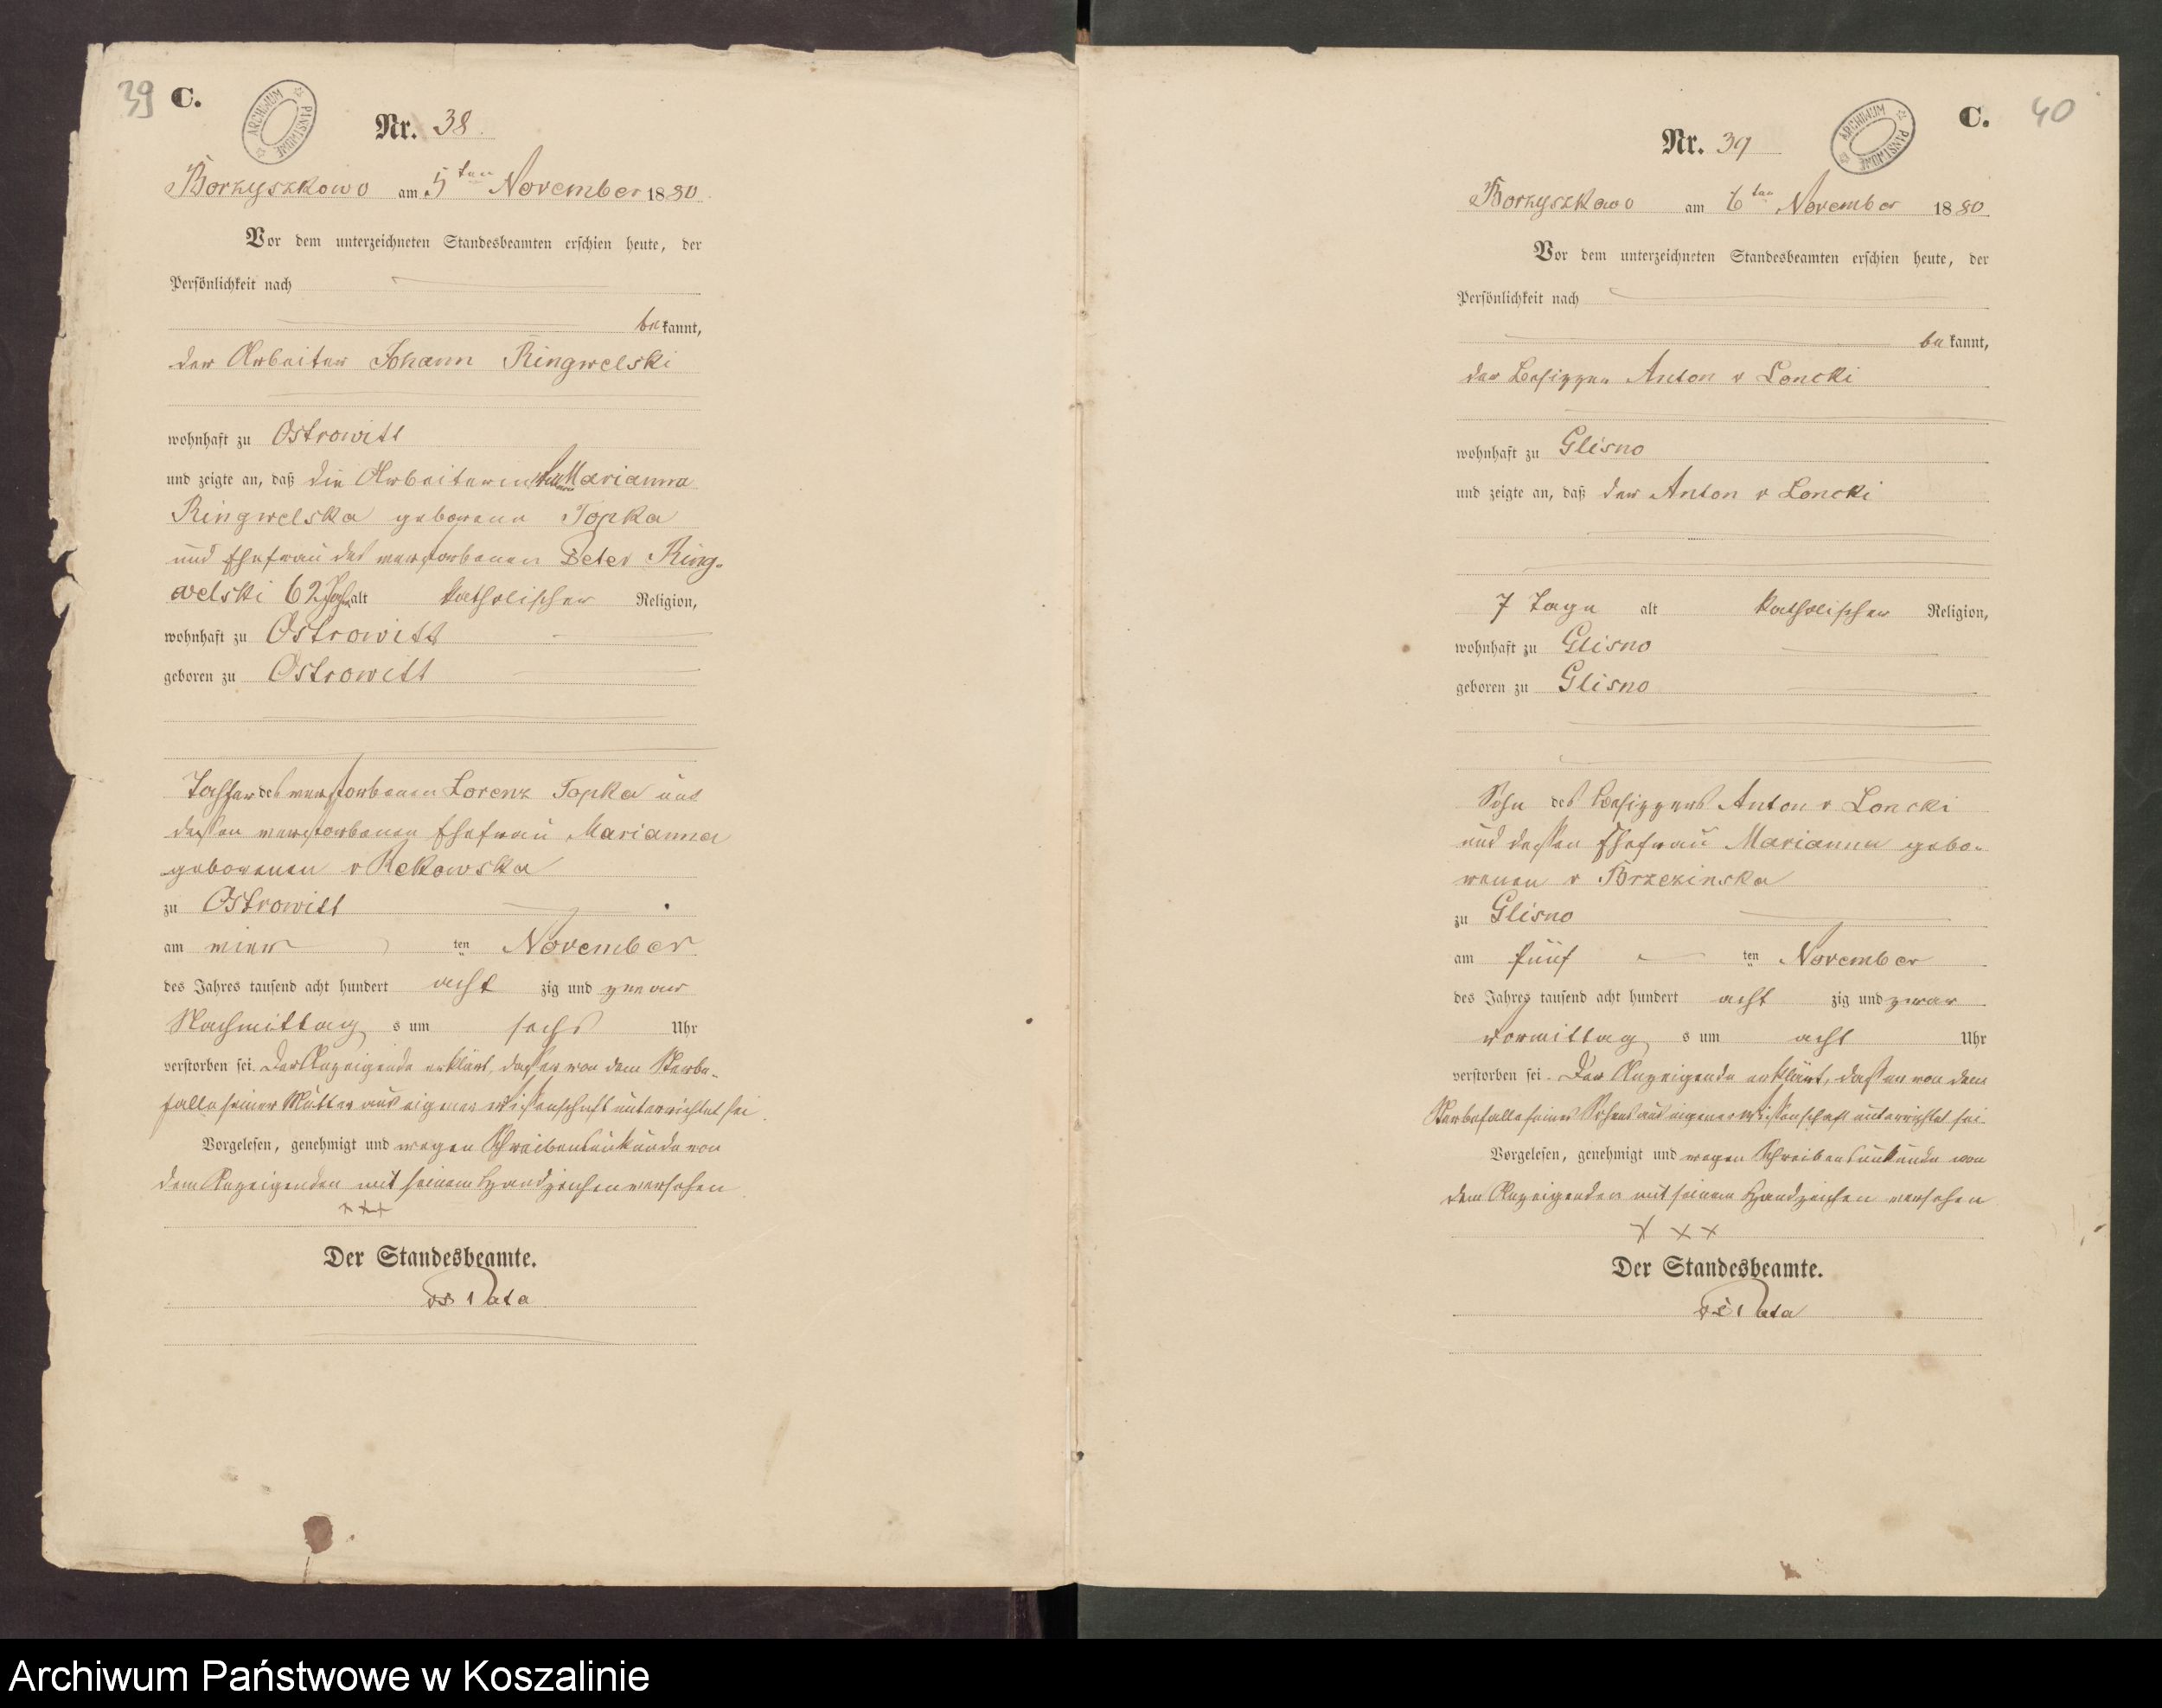 39 C.
ARCHIWUM PAŃSTWOWE
Nr. 38.
Borzyszkowo am 5ten November 1880.
Vor dem unterzeichneten Standesbeamten erschien heute, der
Persönlichkeit nach
bekannt,
der Arbeiter Johann Ringwelski
wohnhaft zu Ostrowitt
und zeigte an, daß die Arbeiterin Marianna
Ringwelska geborene Topka
und Ehefrau des verstorbenen Peter Ring-
welski 62 Jahr alt katholischer Religion,
wohnhaft zu Ostrowitt
geboren zu Ostrowitt
Tochter des verstorbenen Lorenz Topka und
dessen verstorbenen Ehefrau Marianna
geborenen v Rekowska
zu Ostrowitt
am vier ten November
des Jahres tausend acht hundert acht zig und zwar
Nachmittag s um sechs Uhr
verstorben sei. Der Anzeigende erklärt, dass er von dem Sterbe-
falle seiner Mutter aus eigener Wissenschaft unterrichtet sei.
Vorgelesen, genehmigt und wegen Schreibensunkunde von
dem Anzeigenden mit seinem Handzeichen versehen
+++
Der Standesbeamte.
Pata
C. 40
ARCHIWUM PAŃSTWOWE
Nr. 39
Borzyszkowo am 6ten November 1880.
Vor dem unterzeichneten Standesbeamten erschien heute, der
Persönlichkeit nach
bekannt,
der Besitzer Anton v Loncki
wohnhaft zu Glisno
und zeigte an, daß der Anton v Loncki
7 Tage alt katholischer Religion,
wohnhaft zu Glisno
geboren zu Glisno
Sohn des Besitzers Anton v Loncki
und dessen Ehefrau Marianna gebo-
renen v Brzezinska
zu Glisno
am fünf ten November
des Jahres tausend acht hundert acht zig und zwar
vormittag s um acht Uhr
verstorben sei. Der Anzeigende erklärt, dass er von dem
Sterbefalle seines Sohnes aus eigener Wissenschaft unterrichtet sei
Vorgelesen, genehmigt und wegen Schreibensunkunde von
dem Anzeigenden mit seinem Handzeichen versehen
+ + +
Der Standesbeamte.
Pata
Archiwum Państwowe w Koszalinie